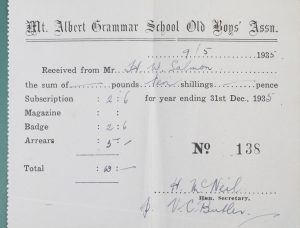 Mt. Albert Grammar School Old Boys' Assn.
9/5 1935
Received from Mr. H. Y. Salmon
the sum of pounds ten shillings pence
Subscription : 2 : 6 for year ending 31st Dec., 1935
Magazine : :
Badge : 2 : 6
Arrears : 5 : —
Total : 10 : —
No 138
H. McNeil
Hon. Secretary.
V. C. Butler